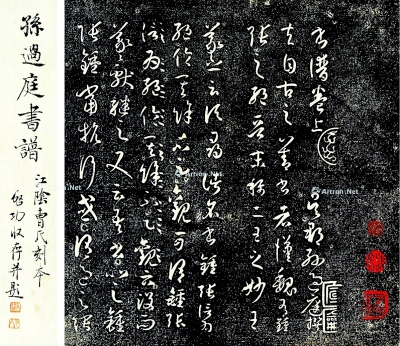 書譜卷上 吳郡孫過庭撰
夫自古之善書者漢魏有鍾
張之絕晉末稱二王之妙王
羲之云頃尋諸名書鍾張信為
絕倫其餘不足觀可謂鍾張
為絕倫其餘不足觀云沒而
羲獻繼之又云吾書比之鍾
張鍾當抗行或謂過之張
孫過庭書譜
江陰曹氏刻本
啟功收存并題
Artron.Net
Artron.Net